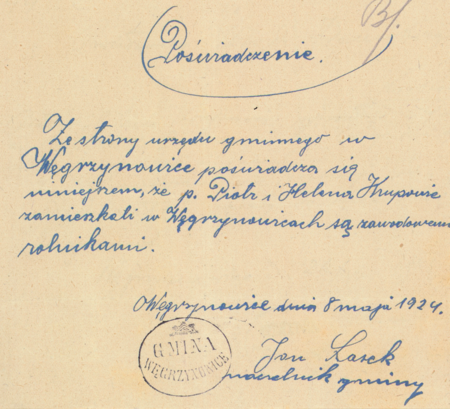 Bf.
Poświadczenie.
Ze strony urzędu gminnego w
Węgrzynowice poświadcza się
niniejszem, że p. Piotr i Helena Krupowie
zamieszkali w Węgrzynowicach są zawodowemi
rolnikami.
Węgrzynowice dnia 8 maja 1924.
GMINA
WĘGRZYNOWICE
Jan Łasek
naczelnik gminy